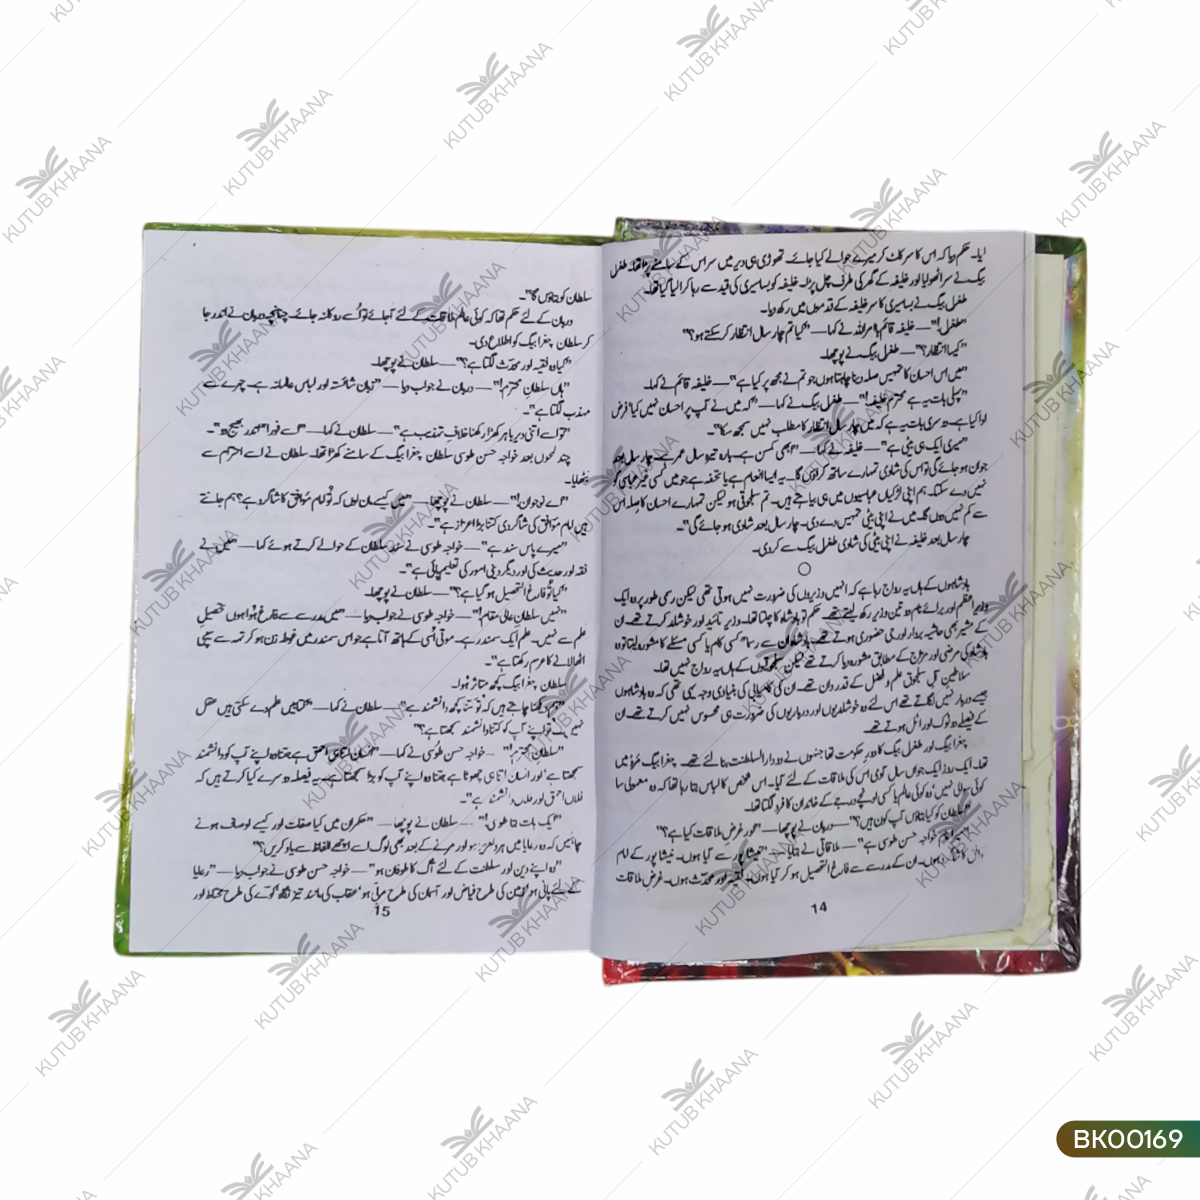 لیا۔ حکم دیا کہ اس کا سر کاٹ کر میرے حوالے کیا جائے۔ تھوڑی ہی دیر میں سر اس کے سامنے پڑا تھا۔ طغرل
بیگ نے سر اٹھوایا اور خلیفہ کے گھر کی طرف چل پڑا۔ خلیفہ کو بساسیری کی قید سے رہا کرا لیا گیا تھا۔
طغرل بیگ نے بساسیری کا سر خلیفہ کے قدموں میں رکھ دیا۔
"طغرل!"— خلیفہ قائم بامر اللہ نے کہا— "کیا تم چار سال انتظار کر سکتے ہو؟"
"کیسا انتظار؟"— طغرل بیگ نے پوچھا۔
"میں اس احسان کا تمہیں صلہ دینا چاہتا ہوں جو تم نے مجھ پر کیا ہے"— خلیفہ قائم نے کہا۔
"پہلی بات یہ ہے محترم خلیفہ!"— طغرل بیگ نے کہا— "کہ میں نے آپ پر احسان نہیں کیا' فرض
ادا کیا ہے۔ دوسری بات یہ ہے کہ میں چار سال انتظار کا مطلب نہیں سمجھ سکا"۔
"میری ایک ہی بیٹی ہے"— خلیفہ نے کہا— "ابھی کمسن ہے۔ بارہ تیرہ سال عمر ہے۔ چار سال بعد
جوان ہو جائے گی تو اس کی شادی تمہارے ساتھ کر دوں گا۔ یہ ایسا انعام ہے یا تحفہ ہے جو میں کسی غیر عباسی کو
نہیں دے سکتا۔ ہم اپنی لڑکیاں عباسیوں میں ہی بیاہتے ہیں۔ تم سلجوقی ہو لیکن تمہارے احسان کا صلہ اس
سے کم نہیں دوں گا۔ میں نے اپنی بیٹی تمہیں دے دی۔ چار سال بعد شادی ہو جائے گی"۔
چار سال بعد خلیفہ نے اپنی بیٹی کی شادی طغرل بیگ سے کر دی۔
بادشاہوں کے ہاں یہ رواج رہا ہے کہ انہیں وزیروں کی ضرورت نہیں ہوتی تھی لیکن رسمی طور پر وہ ایک
وزیر اعظم اور برائے نام دو تین وزیر رکھ لیتے تھے۔ حکم تو بادشاہ کا چلتا تھا۔ وزیر تائید اور خوشامد کرتے تھے۔ ان
کے مشیر بھی حاشیہ بردار اور جی حضوری ہوتے تھے۔ بادشاہ ان سے رسماً" کسی کام یا کسی مسئلے کا مشورہ لیتا تو وہ
بادشاہ کی مرضی اور مزاج کے مطابق مشورہ دیا کرتے تھے لیکن سلجوقیوں کے ہاں یہ رواج نہیں تھا۔
سلاطین آل سلجوق علم و فضل کے قدر دان تھے۔ ان کی کامیابی کی بنیادی وجہ یہی تھی کہ وہ بادشاہوں
جیسے دربار نہیں لگاتے تھے اس لئے وہ خوشامدیوں اور درباریوں کی ضرورت ہی محسوس نہیں کرتے تھے۔ ان
کے فیصلے دو ٹوک اور اٹل ہوتے تھے۔
چغرا بیگ اور طغرل بیگ کا دور حکومت تھا جنہوں نے دو دار السلطنت بنائے تھے۔ چغرا بیگ مرو میں
تھا۔ ایک روز ایک جواں سال آدمی اس کی ملاقات کے لئے آیا۔ اس شخص کا لباس بتا رہا تھا کہ وہ معمولی سا
کوئی سوالی نہیں' وہ کوئی عالم یا کسی اونچے درجے کے خاندان کا فرد لگتا تھا۔
"سلطان کو کیا بتاؤں آپ کون ہیں؟"— دربان نے پوچھا— "اور غرض ملاقات کیا ہے؟"
"میرا نام خواجہ حسن طوسی ہے"— ملاقاتی نے بتایا— "نیشاپور سے آیا ہوں۔ نیشاپور کے امام
کا شاگرد ہوں۔ ان کے مدرسے سے فارغ التحصیل ہو کر آیا ہوں۔ فقیہہ اور محدث ہوں۔ غرض ملاقات
14
سلطان کو بتاؤں گا"۔
دربان کے لئے حکم تھا کہ کوئی عالم ملاقات کے لئے آ جائے تو اُسے روکا نہ جائے۔ چنانچہ دربان نے اندر جا
کر سلطان چغرا بیگ کو اطلاع دی۔
"کیا وہ فقیہہ اور محدث لگتا ہے؟"— سلطان نے پوچھا۔
"ہاں سلطانِ محترم!"— دربان نے جواب دیا— "زبان شائستہ اور لباس عالمانہ ہے۔ چہرے سے
مہذب لگتا ہے"۔
"تو اسے اتنی دیر باہر کھڑا رکھنا خلافِ تہذیب ہے"— سلطان نے کہا— "اسے فوراً" اندر بھیج دو"۔
چند لمحوں بعد خواجہ حسن طوسی سلطان چغرا بیگ کے سامنے کھڑا تھا۔ سلطان نے اسے احترام سے
بٹھایا۔
"اے نوجوان!"— سلطان نے پوچھا— "میں کیسے مان لوں کہ تُو امام موافق کا شاگرد ہے؟ ہم جانتے
ہیں امام موافق کی شاگردی کتنا بڑا اعزاز ہے"۔
"میرے پاس سند ہے"— خواجہ طوسی نے سند سلطان کے حوالے کرتے ہوئے کہا— "میں نے
فقہ اور حدیث کی اور دیگر دینی امور کی تعلیم پائی ہے"۔
"کیا تُو فارغ التحصیل ہو گیا ہے؟"— سلطان نے پوچھا۔
"نہیں سلطان عالی مقام!"— خواجہ طوسی نے جواب دیا— "میں مدرسے سے فارغ ہُوا ہوں تحصیل
علم سے نہیں۔ علم ایک سمندر ہے۔ موتی اُسی کے ہاتھ آتا ہے جو اس سمندر میں غوطہ زن ہو کر تہہ سے سیپی
اٹھا لانے کا عزم رکھتا ہے"۔
سلطان چغرا بیگ کچھ متاثر ہوا۔
"ہم دیکھنا چاہتے ہیں کہ تُو کتنا کچھ دانشمند ہے"— سلطان نے کہا— "کتابیں علم دے سکتی ہیں عقل
نہیں۔ تُو اپنے آپ کو کتنا دانشمند سمجھتا ہے؟"
"سلطانِ محترم!"— خواجہ حسن طوسی نے کہا— "انسان اتنا ہی احمق ہے جتنا وہ اپنے آپ کو دانشمند
سمجھتا ہے اور انسان اتنا ہی چھوٹا ہے جتنا وہ اپنے آپ کو بڑا سمجھتا ہے۔ یہ فیصلہ دوسرے کیا کرتے ہیں کہ
فلاں احمق اور فلاں دانشمند ہے"۔
"ایک بات بتا طوسی!"— سلطان نے پوچھا— "حکمران میں کیا صفات اور کیسے اوصاف ہونے
چاہئیں کہ وہ رعایا میں ہر دلعزیز ہو اور مرنے کے بعد بھی لوگ اسے اچھے الفاظ سے یاد کریں؟"
"وہ اپنے دین اور سلطنت کے لئے آگ کا طوفان ہو"— خواجہ حسن طوسی نے جواب دیا— "رعایا
کے لئے پانی ہو' زمین کی طرح فیاض اور آسمان کی طرح مہربان ہو' عقاب کی مانند تیز نگاہ' کوے کی طرح محتاط اور
15
KUTUB KHAANA
BK00169